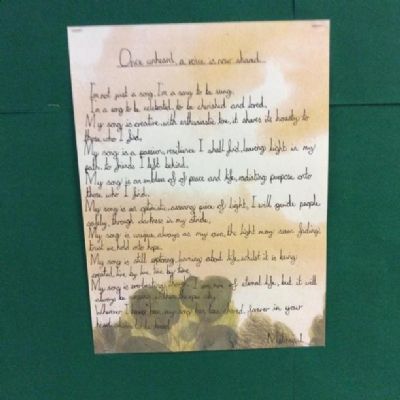 Once unheard, a voice is now shared...
I'm not just a song, I'm a song to be sung,
I'm a song to be celebrated, to be cherished and loved,
My song is creative, with enthusiastic tone, it shares its honesty to
those who I find,
My song is a passion, resilience I shall find, leaving light in my
path, to friends I left behind,
My song is an emblem of of peace and life, radiating purpose onto
those who I find,
My song is an optimistic, assuring piece of light, I will guide people
safely, through darkness in my stride,
My song is unique, always as my own, the light may seem fading,
trust me, hold onto hope
My song is still exploring, learning about life, whilst it is being
created, line by line, line by line
My song is everlasting, though I am of eternal life, but it will
always be within the
Wherever I have my song has been shared, forever in your
heart